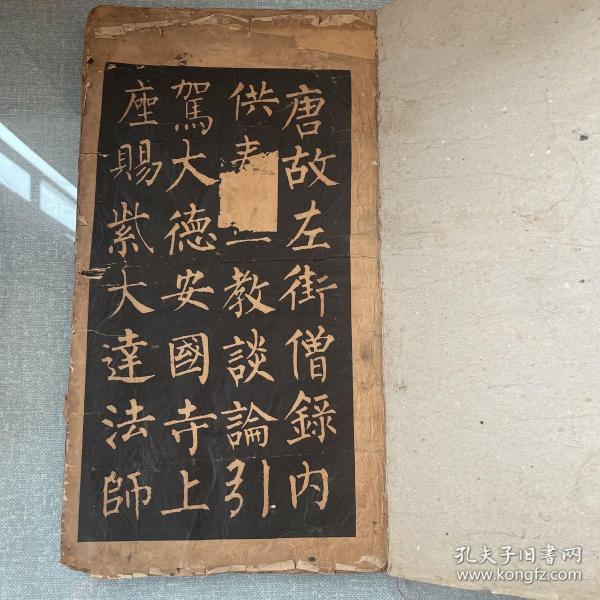 唐故左街僧錄內
供表一教談論引
駕大德安國寺上
座賜紫大達法師
孔夫子旧書网
www.kongfz.com